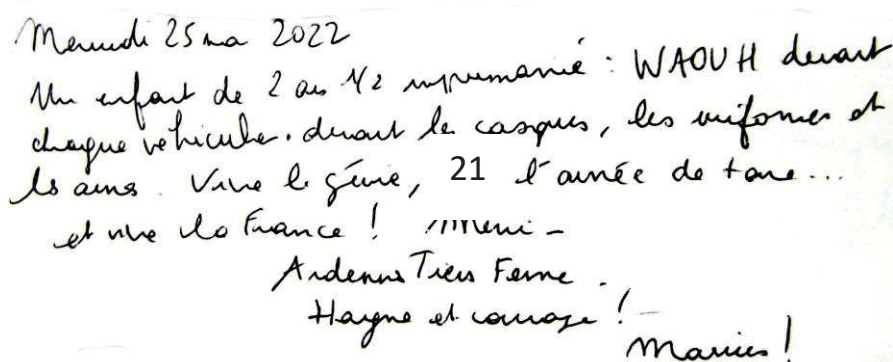 Mercredi 25 mai 2022
Un enfant de 2 ans 1/2 impressionné : WAOUH devant
chaque véhicule, devant les casques, les uniformes et
les armes. Vive le génie, 21 l'armée de terre...
et vive la France ! Merci -
Ardennes Tiens Ferme.
Hargne et courage !
Marius !